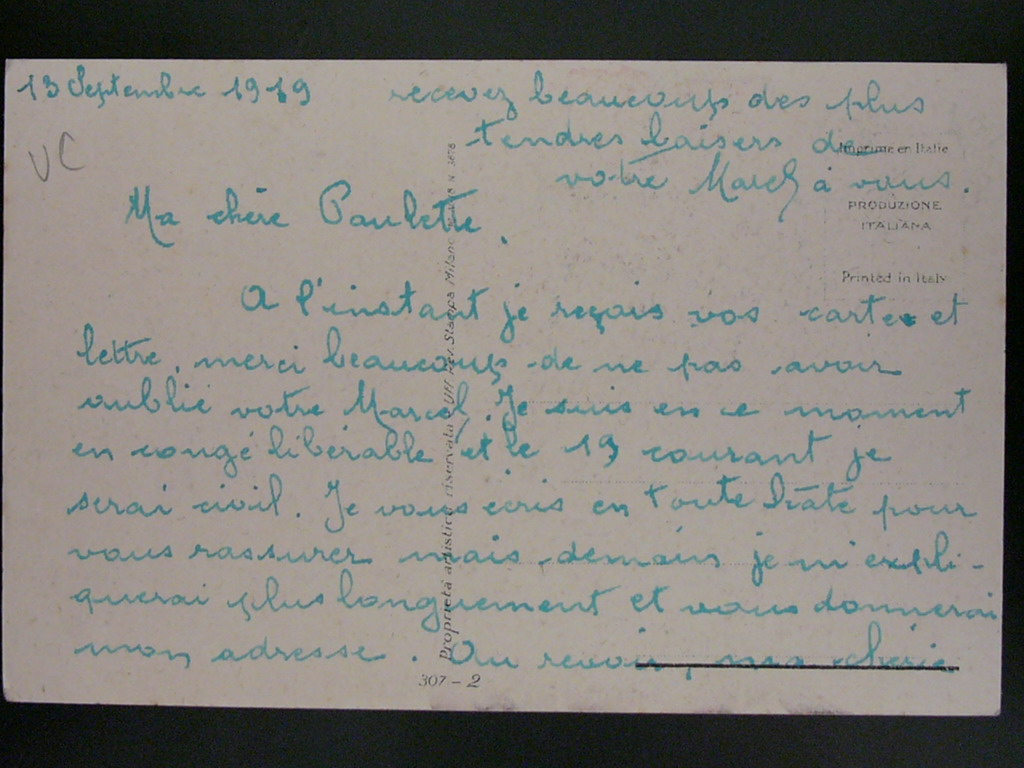 13 Septembre 1919
VC
Ma chère Paulette.
A l'instant je reçois vos cartes et
lettre, merci beaucoup de ne pas avoir
oublié votre Marcel. Je suis en ce moment
en congé libérable et le 19 courant je
serai civil. Je vous écris en toute hâte pour
vous rassurer mais demain je m'expli-
querai plus longuement et vous donnerai
mon adresse. Au revoir, ma chérie
recevez beaucoup des plus
tendres baisers de
votre Marcel à vous.
Imprimé en Italie
PRODUZIONE
ITALIANA
Printed in Italy
Proprietà artistica riservata Rev. Stampa Milano
307 - 2